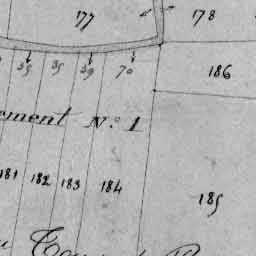 77 178
35 35 39 70 186
ement N.º 1
181 182 183 184 185